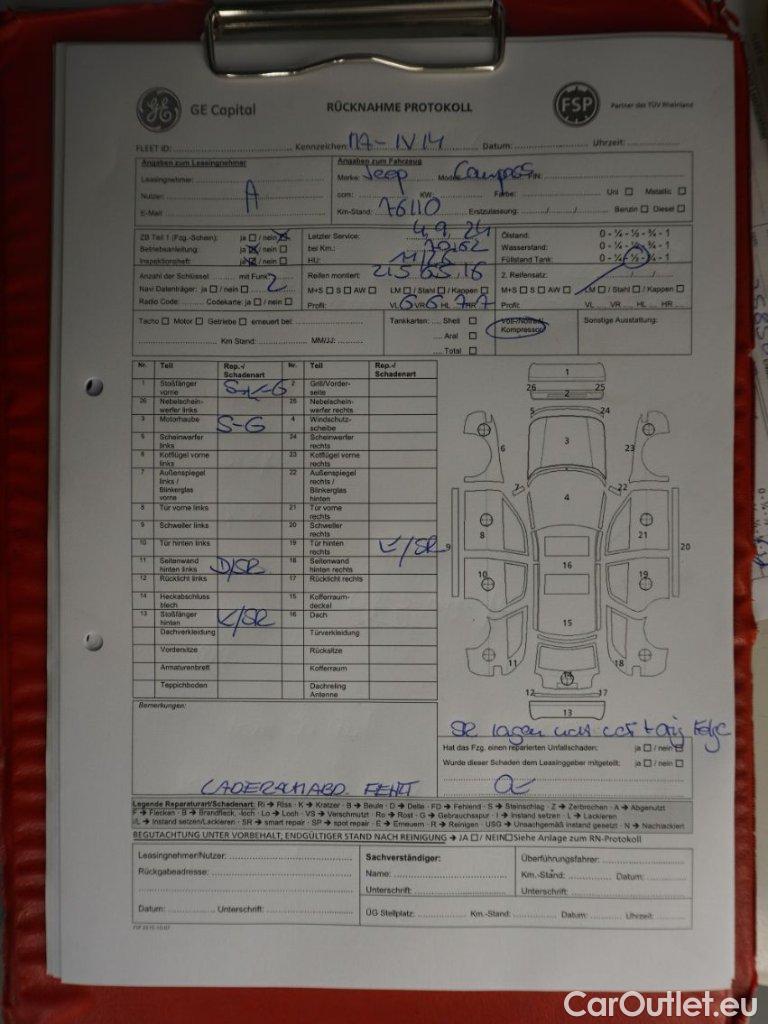 GE GE Capital RÜCKNAHME PROTOKOLL FSP Partner des TÜV Rheinland
FLEET ID: Kennzeichen: MA-IV14 Datum: Uhrzeit:
Angaben zum Leasingnehmer Angaben zum Fahrzeug
Leasingnehmer: Marke: Jeep Modell: Compass FIN:
Nutzer: A ccm: KW: Farbe: Uni Metallic
E-Mail: Km-Stand: 76110 Erstzulassung: Benzin Diesel
ZB Teil 1 (Fzg.-Schein): ja / nein Letzter Service: 4,9,24 Ölstand: 0 - ¼ - ½ - ¾ - 1
Betriebsanleitung: ja / nein bei Km.: 70262 Wasserstand: 0 - ¼ - ½ - ¾ - 1
Inspektionsheft: ja / nein HU: 11/26 Füllstand Tank: 0 - ¼ - ½ - ¾ - 1
Anzahl der Schlüssel mit Funk: 2 Reifen montiert: 215,65,16 2. Reifensatz:
Navi Datenträger: ja / nein M+S S AW LM / Stahl / Kappen M+S S AW LM / Stahl / Kappen
Radio Code: Codekarte: ja / nein Profil: VL 6 VR 6 HL 7 HR 7 Profil: VL VR HL HR
Tacho Motor Getriebe erneuert bei: Tankkarten: Shell Voll-/Notrad/ Sonstige Ausstattung:
Km Stand: MM/JJ: Aral Kompressor
Total
Nr. Teil Rep.-/ Schadenart Nr. Teil Rep.-/ Schadenart
1 Stoßfänger vorne 2 Grill/Vorderseite
26 Nebelscheinwerfer links 25 Nebelscheinwerfer rechts
3 Motorhaube S-G 4 Windschutzscheibe
5 Scheinwerfer links 24 Scheinwerfer rechts
6 Kotflügel vorne links 23 Kotflügel vorne rechts
7 Außenspiegel links / Blinkerglas vorne 22 Außenspiegel rechts / Blinkerglas hinten
8 Tür vorne links 21 Tür vorne rechts
9 Schweller links 20 Schweller rechts
10 Tür hinten links 19 Tür hinten rechts K/SR
11 Seitenwand hinten links D/SR 18 Seitenwand hinten rechts
12 Rücklicht links 17 Rücklicht rechts
14 Heckabschluss blech 15 Kofferraumdeckel
13 Stoßfänger hinten K/SR 16 Dach
Dachverkleidung Türverkleidung
Vordersitze Rücksitze
Armaturenbrett Kofferraum
Teppichboden Dachreling Antenne
Bemerkungen:
Hat das Fzg. einen reparierten Unfallschaden: ja / nein
Wurde dieser Schaden dem Leasinggeber mitgeteilt: ja / nein
FEHLT
Legende Reparaturart/Schadenart: Ri → Riss · K → Kratzer · B → Beule · D → Delle · FD → Fehlend · S → Steinschlag · Z → Zerbrochen · A → Abgenutzt
F → Flecken · B → Brandfleck, -loch · Lo → Loch · VS → Verschmutzt · Ro → Rost · G → Gebrauchsspur · I → Instand setzen · L → Lackieren
I/L → Instand setzen/Lackieren · SR → smart repair · SP → spot repair · E → Erneuern · R → Reinigen · USG → Unsachgemäß instand gesetzt · N → Nachlackiert
BEGUTACHTUNG UNTER VORBEHALT; ENDGÜLTIGER STAND NACH REINIGUNG → JA / NEIN Siehe Anlage zum RN-Protokoll
Leasingnehmer/Nutzer: Sachverständiger: Überführungsfahrer:
Rückgabeadresse: Name: Km.-Stand: Datum:
Unterschrift: Unterschrift:
Datum: Unterschrift: ÜG Stellplatz: Km.-Stand: Datum: Uhrzeit:
CarOutlet.eu